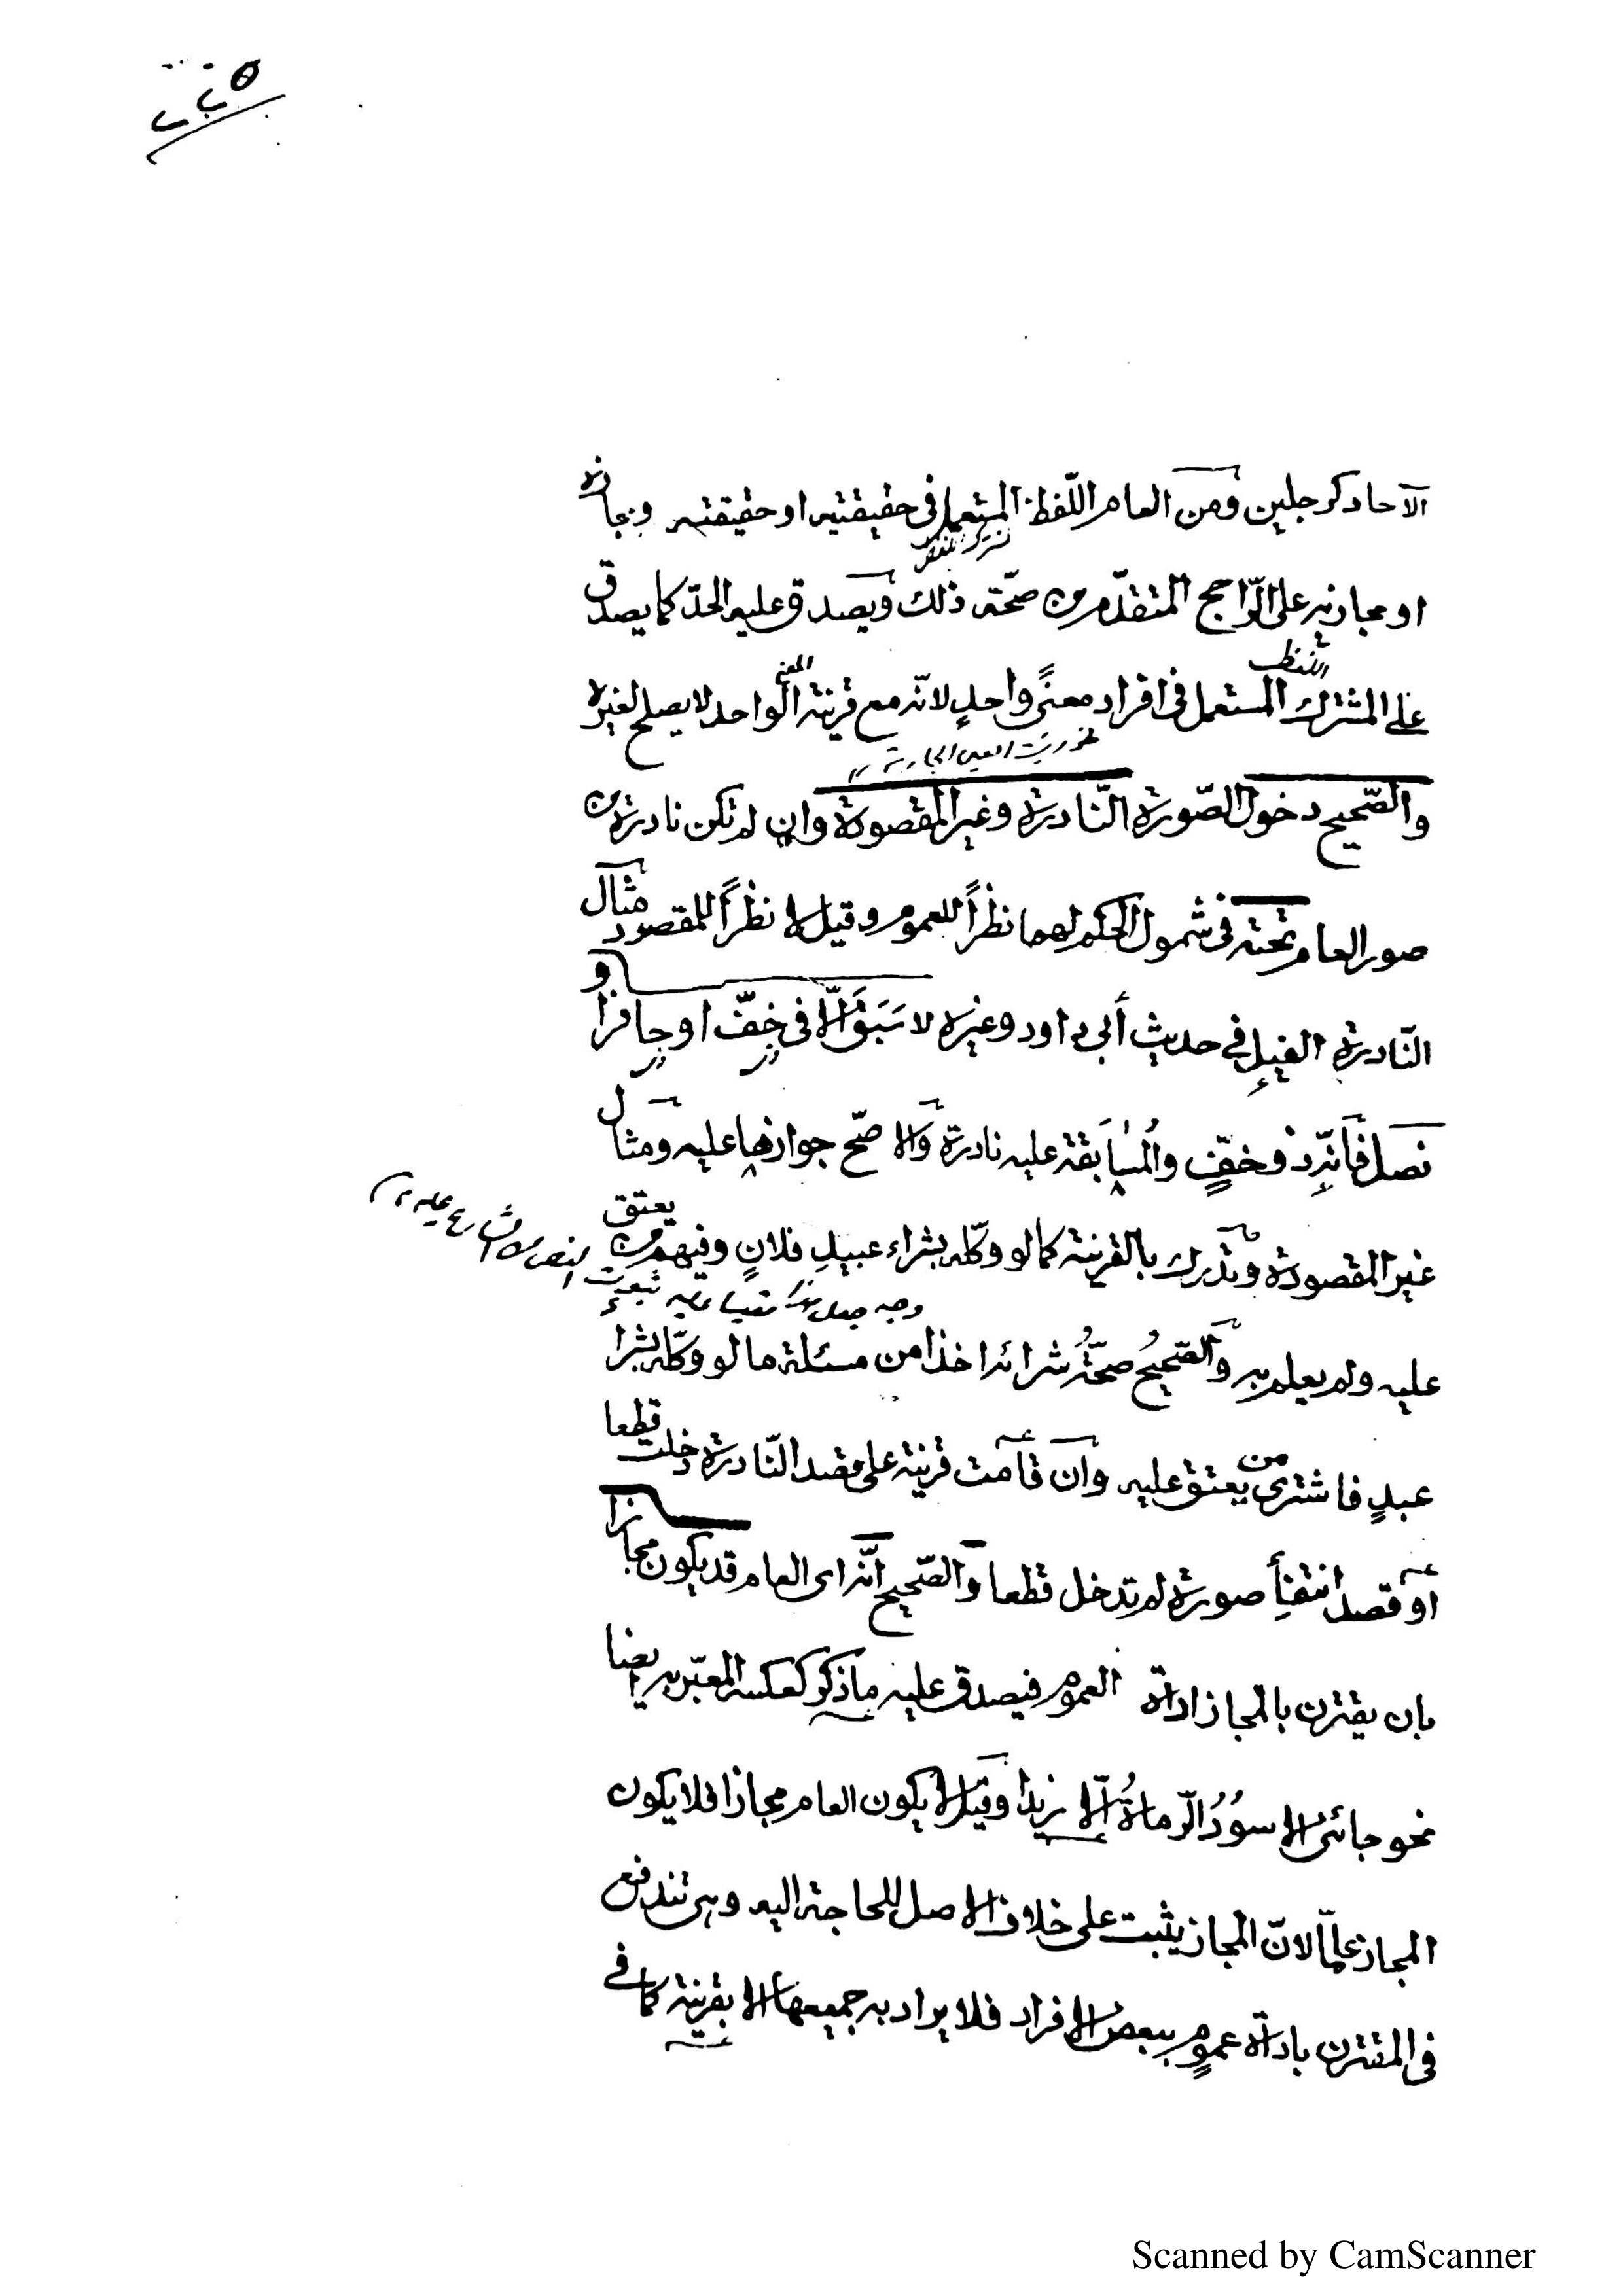 الآحاد كرجلين ومن العام اللّفظ المستعمل في حقيقتيه او حقيقته ومجازه
او مجازيه على الرّاجح المتقدّم من صحّة ذلك ويصدق عليه الحدّ كما يصدق
اللفظ
على المشترك المستعمل في افراد معنًى واحدٍ لانّه مع قرينة الواحد لا يصلح لغيره
المعنى
والصّحيح دخول الصّورة النّادرة وغير المقصودة وان لم تكن نادرة من
صور العام تحته في شمول الحكم لهما نظراً للعموم وقيل لا نظراً للمقصود مثال
النّادرة الفيل في حديث أبي داود وغيره لا سَبَقَ الّا في خفّ او حافر او
نصل فانّه ذو خفّ والمُسابَقة عليه نادرة والاصّح جوازها عليه ومثال
غير المقصودة وتدرك بالقرينة كما لو وكّله بشراء عبيدِ فلانٍ وفيهم من يعتق
عليه ولم يعلم به والصّحيحُ صحّةُ شرائه اخذا من مسئلة ما لو وكّله بشرا
عبدٍ فاشترى من يعتق عليه وان قامت قرينة على قصد النّادرة دخلت قطعا
او قصد انتفأ صورة لم تدخل قطعا والصّحيح انّه اى العام قد يكون مجازا
بان يقترن بالمجاز اداة العموم فيصدق عليه ما ذكر كعكسه المعبّر به ايضا
نحو جائنى الاسوُدُ الرّماةُ الّا زيدا وقيل لا يكون العام مجازا فلا يكون
المجاز عامّا لانّ المجاز يثبت على خلاف الاصل للحاجة اليه وهى تندفع
فى المقترن باداة عمومٍ ببعض الافراد فلا يراد به جميعها الا بقرينة كما في
Scanned by CamScanner